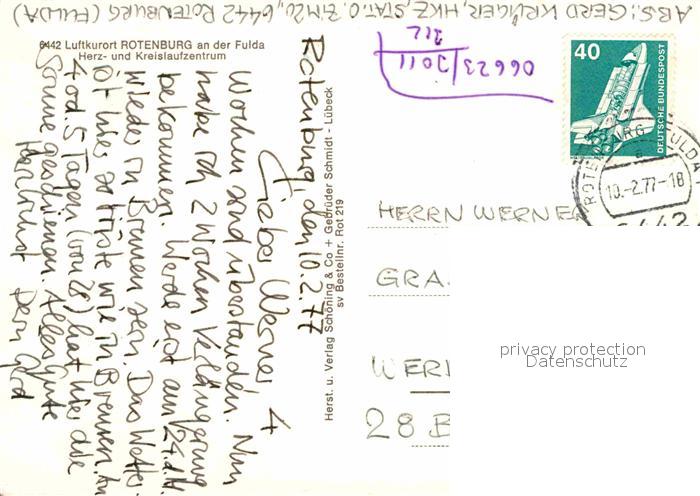 ABS: GERD KRÜGER, HKZ, STAT. O. ZIM 20, 6442 ROTENBURG (FULDA)
6442 Luftkurort ROTENBURG an der Fulda
Herz- und Kreislaufzentrum
Rotenburg, den 10.2.77
Lieber Werner 4
Wochen sind überstanden. Nun
habe ich 2 Wochen Verlängerung
bekommen. Werde erst am 24. d. M.
wieder in Bremen sein. Das Wetter
ist hier so triste wie in Bremen. An
4 od. 5 Tagen (von 28) hat hier die
Sonne geschienen. Alles Gute
Herzlichst Dein Gerd
Herst. u. Verlag Schöning & Co + Gebrüder Schmidt - Lübeck
sv Bestellnr. Rot 219
06623/2011
40
DEUTSCHE BUNDESPOST
10.-2.77-18
HERRN WERNER
GRA
WER
28 B
privacy protection
Datenschutz